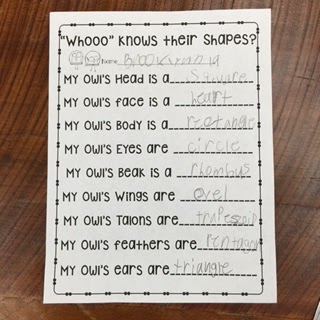 "Whooo" Knows their Shapes?
Name
My Owl's Head is a square
My Owl's face is a heart
My Owl's Body is a rectangle
My Owl's Eyes are circle
My Owl's Beak is a rhombus
My Owl's Wings are ovel
My Owl's Talons are trapezoid
My Owl's feathers are pentagon
My Owl's ears are triangle